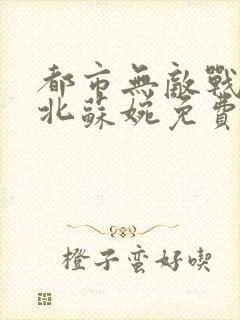 都市無敵戰
北蘇婉免費
橙子蛮好喫